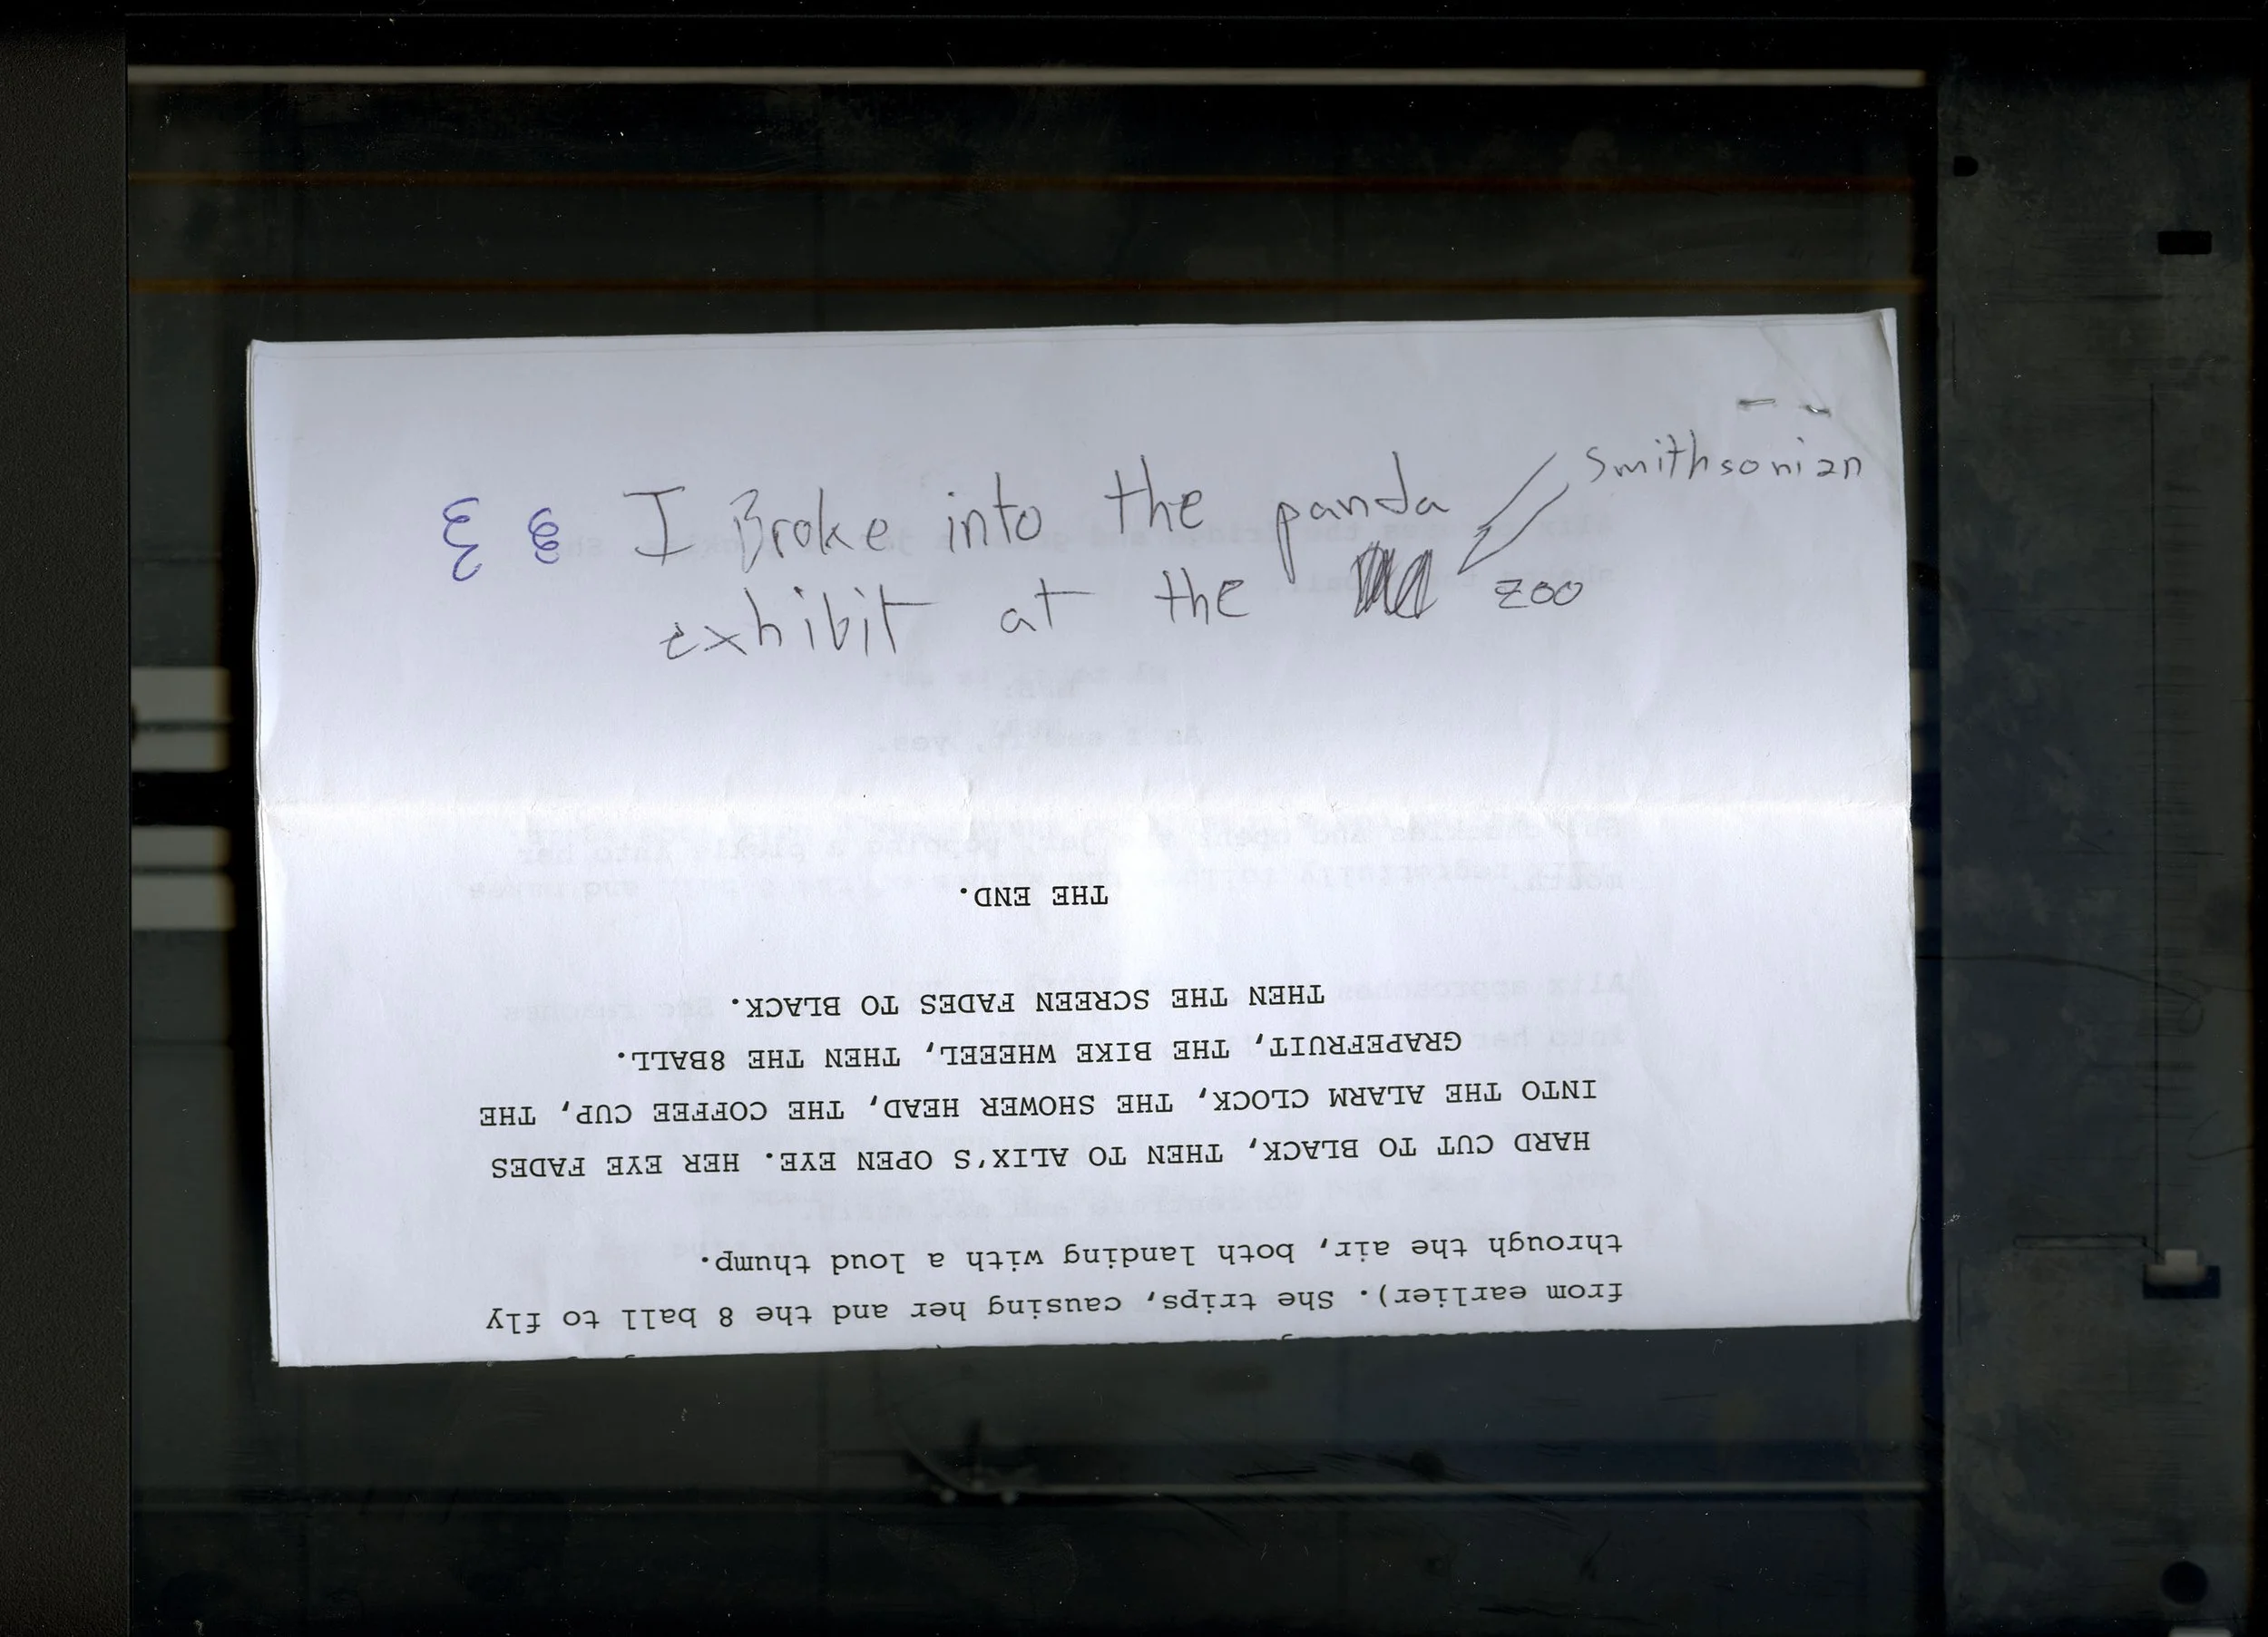 Smithsonian
I Broke into the panda
exhibit at the zoo
from earlier). She trips, causing her and the 8 ball to fly
through the air, both landing with a loud thump.
HARD CUT TO BLACK, THEN TO ALIX'S OPEN EYE. HER EYE FADES
INTO THE ALARM CLOCK, THE SHOWER HEAD, THE COFFEE CUP, THE
GRAPEFRUIT, THE BIKE WHEEEL, THEN THE 8BALL.
THEN THE SCREEN FADES TO BLACK.
THE END.